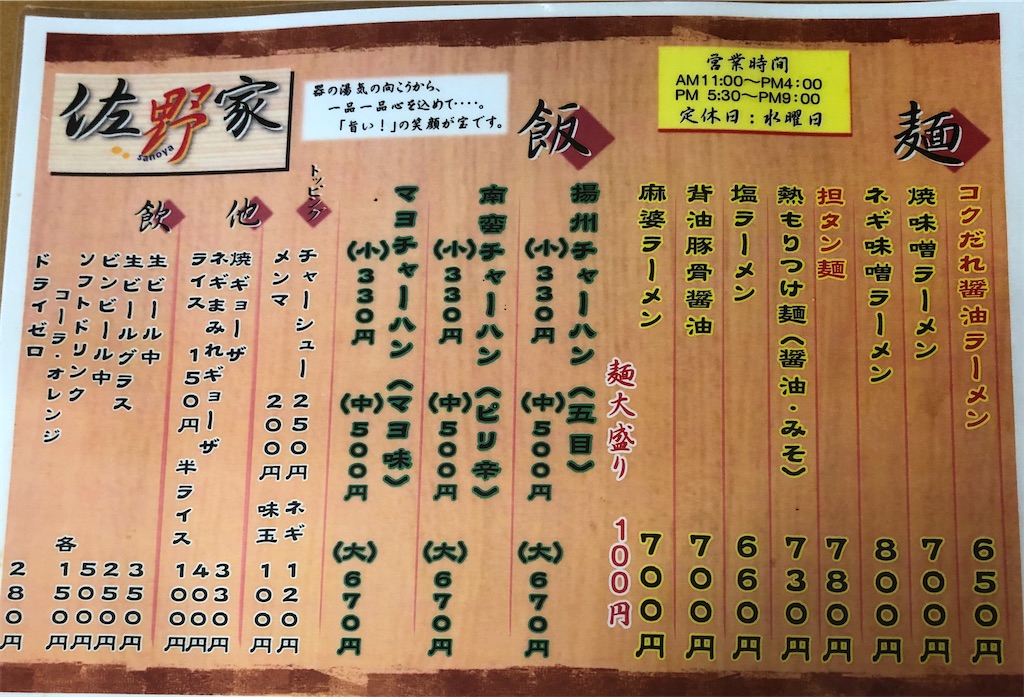 佐野家
sanoya
器の湯気の向こうから、
一品一品心を込めて‥‥。
「旨い！」の笑顔が宝です。
営業時間
AM11:00～PM4:00
PM 5:30～PM9:00
定休日：水曜日
麺
コクだれ醤油ラーメン 650円
焼味噌ラーメン 700円
ネギ味噌ラーメン 800円
担タン麺 780円
熱もりつけ麺（醤油・みそ） 730円
塩ラーメン 660円
背油豚骨醤油 700円
麻婆ラーメン 700円
麺大盛り 100円
飯
揚州チャーハン（五目）
（小）330円 （中）500円 （大）670円
南蛮チャーハン（ピリ辛）
（小）330円 （中）500円 （大）670円
マヨチャーハン（マヨ味）
（小）330円 （中）500円 （大）670円
トッピング
チャーシュー 250円 ネギ 120円
メンマ 200円 味玉 100円
他
焼ギョーザ 330円
ネギまみれギョーザ 400円
ライス 150円 半ライス 100円
飲
生ビール中 350円
生ビールグラス 250円
ビンビール中 500円
ソフトドリンク
コーラ・オレンジ 各150円
ドライゼロ 280円